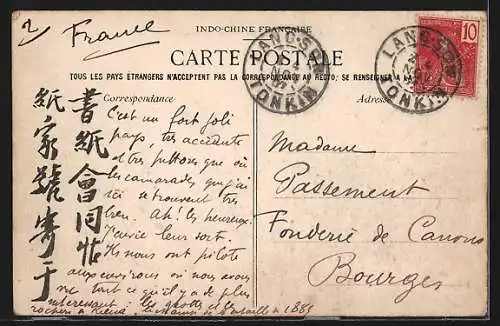 2/ France
INDO-CHINE FRANÇAISE
CARTE POSTALE
TOUS LES PAYS ÉTRANGERS N'ACCEPTENT PAS LA CORRESPONDANCE AU RECTO, SE RENSEIGNER A
LANG-SON
TONKIN
LANG-SON
TONKIN
10
Correspondance
Adresse
書紙會同
紙家號寄于
C'est un fort joli
pays, très accidenté
et très pittoresque où
les camarades que j'ai
ici se trouvent très
bien. Ah! les heureux.
J'envie leur sort.
Ils nous ont piloté
aux environs où nous avons
vu tout ce qu'il y a de plus
intéressant : les grottes et les
rochers à
de bataille de 1885
Madame
Passement
Fonderie de Canons
Bourges